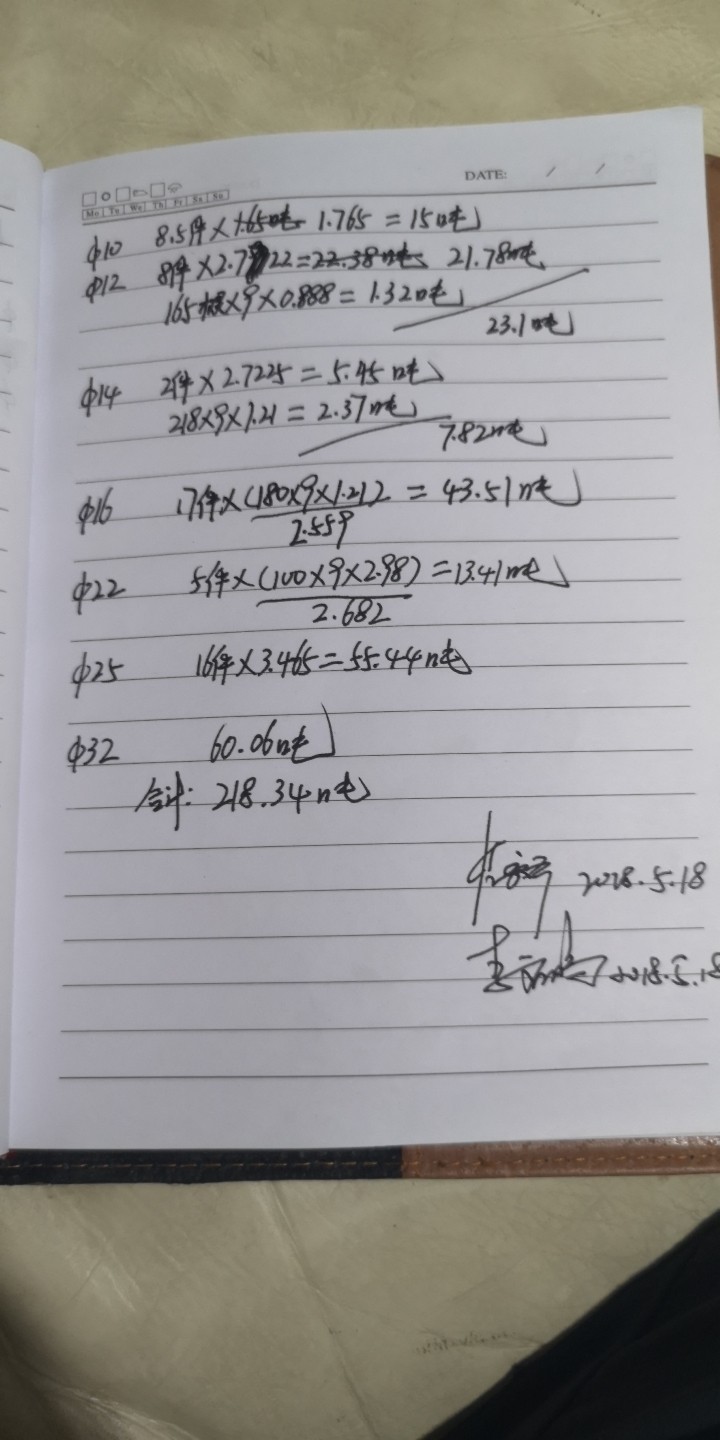 DATE: / /
Mo Tu We Th Fr Sa Su
φ10 8.5件×1.65吨 1.765=15吨
φ12 8件×2.722=22.38吨 21.78吨
165根×9×0.888=1.32吨
23.1吨
φ14 2件×2.7225=5.45吨
218×9×1.21=2.37吨
7.82吨
φ16 17件×(180×9×1.21)2=43.51吨
2.559
φ22 5件×(100×9×2.98)=13.41吨
2.682
φ25 16件×3.465=55.44吨
φ32 60.06吨
合计:218.34吨
2018.5.18
2018.5.18